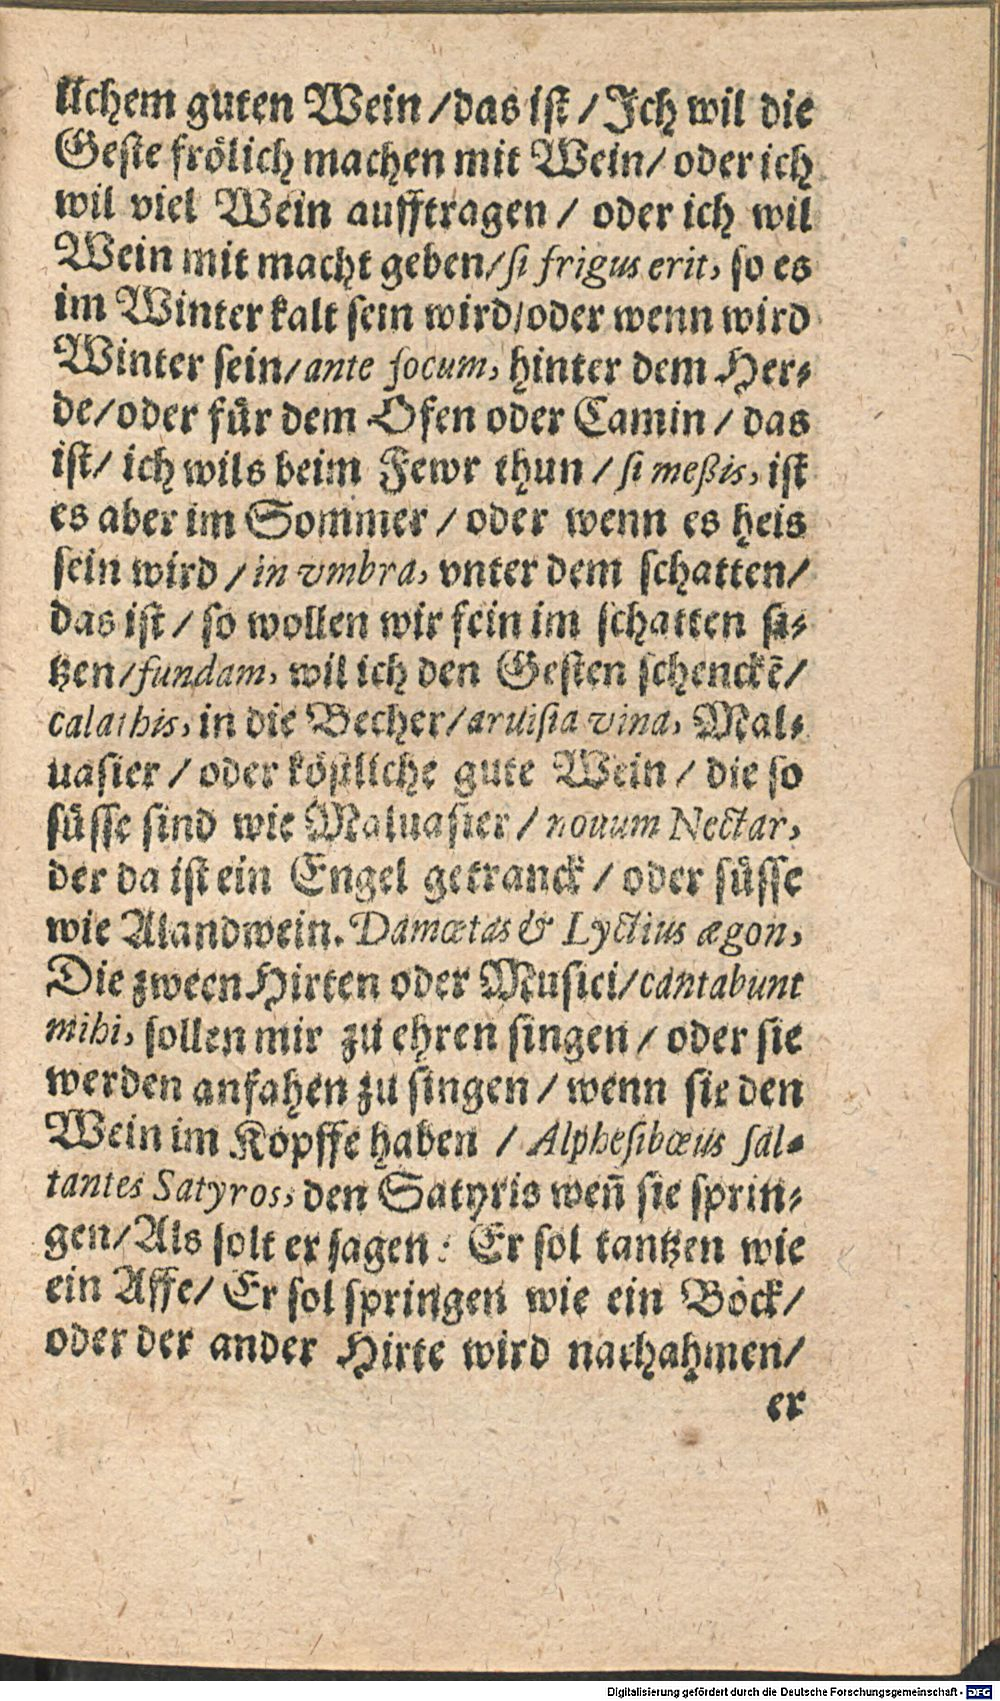 lichem guten Wein / das ist / Ich wil die
Geste frölich machen mit Wein / oder ich
wil viel Wein aufftragen / oder ich wil
Wein mit macht geben / si frigus erit, so es
im Winter kalt sein wird / oder wenn wird
Winter sein / ante focum, hinter dem Her⸗
de / oder fuͤr dem Ofen oder Camin / das
ist / ich wils beim Fewr thun / si meßis, ist
es aber im Sommer / oder wenn es heis
sein wird / in vmbra, vnter dem schatten /
das ist / so wollen wir fein im schatten si⸗
tzen / fundam, wil ich den Gesten schenckē /
calathis, in die Becher / aruisia vina, Mal⸗
uasier / oder köstliche gute Wein / die so
suͤsse sind wie Maluasier / nouum Nectar,
der da ist ein Engel getranck / oder suͤsse
wie Alandwein. Damœtas & Lyctius ægon,
Die zween Hirten oder Musici / cantabunt
mihi, sollen mir zu ehren singen / oder sie
werden anfahen zu singen / wenn sie den
Wein im Kopffe haben / Alphesibœus sal⸗
tantes Satyros, den Satyris weñ sie sprin⸗
gen / Als solt er sagen : Er sol tantzen wie
ein Affe / Er sol springen wie ein Bock /
oder der ander Hirte wird nachahmen /
er
Digitalisierung gefördert durch die Deutsche Forschungsgemeinschaft - DFG